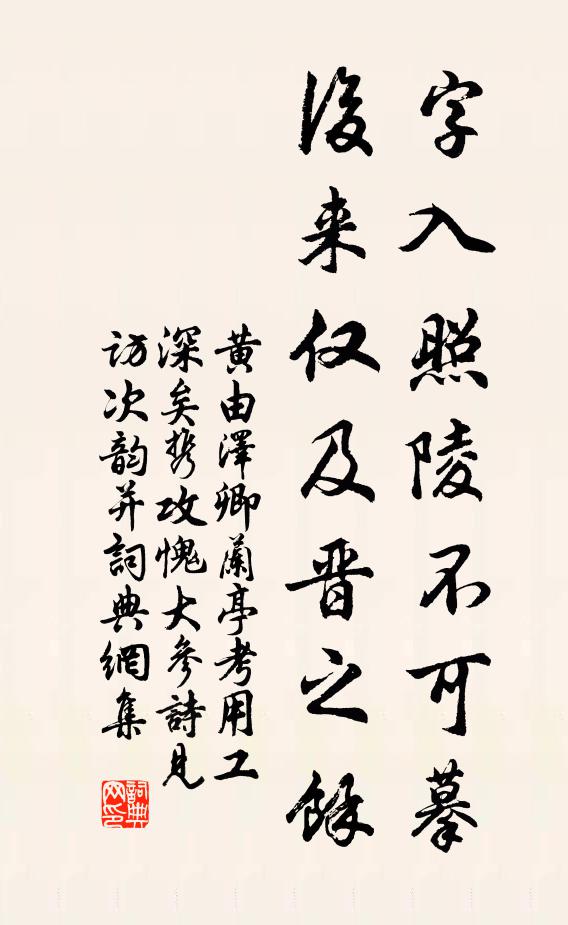 字入照陵不可摹
後来仅及晋之餘
黄由澤卿蘭亭考用工
深矣携攻愧大參詩見
访次韵并詞典網集
詞典
网印